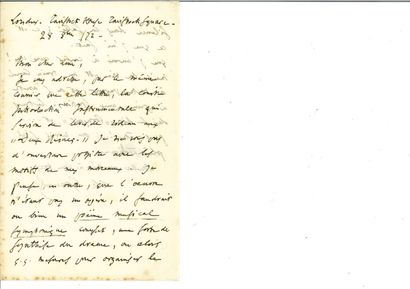 Londres. Tavistock House Tavistock Square.
28 8bre /72.
Mon cher ami,
Je vous adresse, par le même
courrier que cette lettre, la courte
Introduction Instrumentale qui
servira de lever de rideau aux
"Deux Reines." Je ne vois pas
d'ouverture possible avec les
motifs de mes morceaux. Je
pense, en outre, que l'œuvre
n'étant pas un opéra, il faudrait
ou bien un poème musical
symphonique complet, une sorte de
synthèse du drame, ou alors
mesures pour organiser le